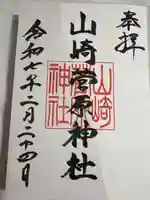 奉拝
山崎菅原神社
山崎
神社
令和七年二月二十四日